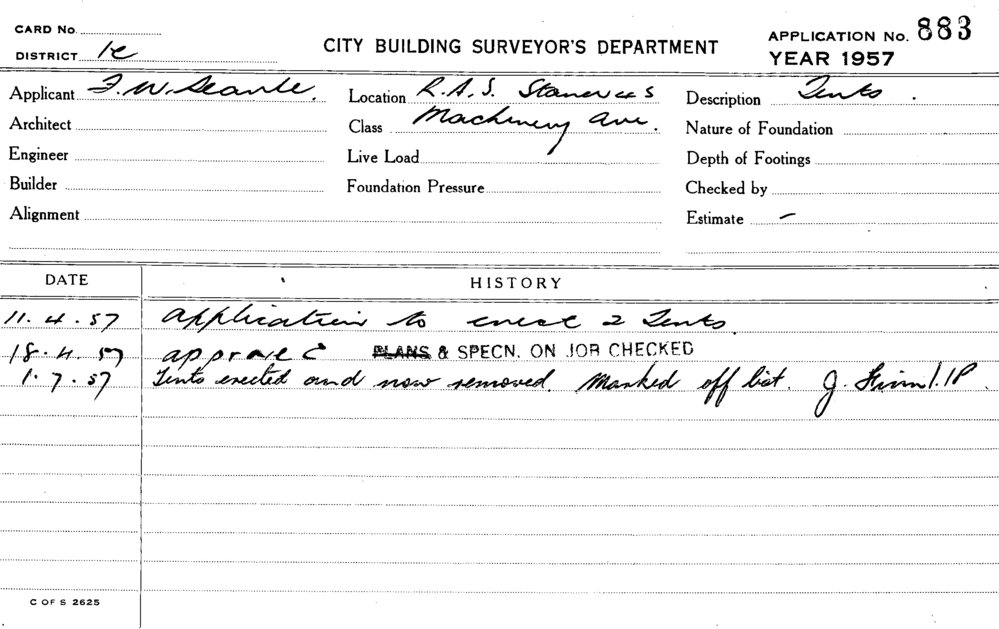 CARD No.
DISTRICT 1c
CITY BUILDING SURVEYOR'S DEPARTMENT
APPLICATION No. 883
YEAR 1957
Applicant F. W. Searle.
Location R.A.S.
Description Tents.
Architect
Class Machinery Ave.
Nature of Foundation
Engineer
Live Load
Depth of Footings
Builder
Foundation Pressure
Checked by
Alignment
Estimate –
DATE HISTORY
11.4.57 Application to erect 2 Tents.
18.4.57 approved PLANS & SPECN. ON JOB CHECKED
1.7.57 Tents erected and now removed. Marked off list. J.
C OF S 2625